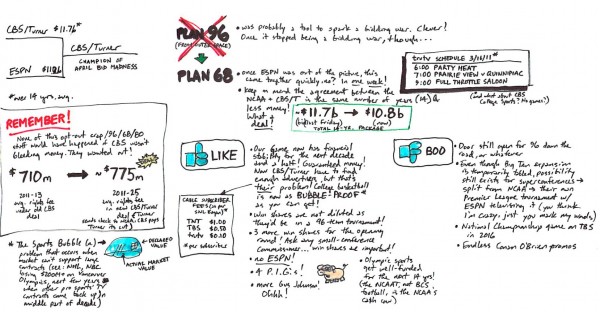 CBS/Turner $11.7b*
ESPN $11.2b
CBS/Turner
CHAMPION OF
APRIL BID MADNESS
*over 14 yrs. avg.
PLAN 96
(FROM OUTER SPACE)
PLAN 68
• was probably a tool to spark a bidding war. Clever!
Once it stopped being a bidding war, though...
• once ESPN was out of the picture, this
came together quickly, no? In one week!
• keep in mind the agreement between the
NCAA + CBS/T is the same number of years (14) @
less money!
What a
deal!
~$11.7b → $10.8b
(bidlust Friday) (now)
TOTAL 14-YR. PACKAGE
trutv SCHEDULE 3/16/11*
6:00 PARTY HEAT
7:00 PRAIRIE VIEW v QUINNIPIAC
9:00 FULL THROTTLE SALOON
(and what about CBS
College Sports? No games?)
REMEMBER!
None of this opt-out crap/96/68/80
stuff would have happened if CBS wasn't
bleeding money. They wanted out!
$710m → ~$775m
2011-13
avg. rights fee
under old CBS
deal
2011-25
avg. rights fee
in new CBS/Turner
deal
Turner
sends check to NCAA, CBS pays
Turner its cut
* The Sports Bubble (n.)
problem that occurs when
market can't support large
contracts (see: NHL, NBC
losing $200m on Vancouver
Olympics, next few years
when other pro sports TV
contracts come back up in
middle part of decade)
DECLARED
VALUE
ACTUAL MARKET
VALUE
LIKE
• Our game now has financial
stability for the next decade
and a half! Guaranteed money!
Now CBS/Turner have to find
enough advertisers, but that's
their problem! College basketball
is now as BUBBLE-PROOF*
as you can get!
• win shares are not diluted as
they'd be in a 96-team tournament!
• 3 more win shares for the opening
round! Ask any small-conference
Commissioner... win shares are important!
• no ESPN!
• 4 P.I.G.s!
• more Gus Johnson!
Ohhhh!
CABLE SUBSCRIBER
FEES (in per
SNL Kagan)*
TNT $1.00
TBS $0.50
trutv $0.10
*per subscriber
• Olympic sports
get well-funded
for the next 14 yrs!
(the NCAAT, not BCS
football, is the NCAA's
cash cow)
BOO
• Door still open for 96 down the
road, or whatever
• Even though Big Ten expansion
is temporarily tabled, possibility
still exists for superconferences →
split from NCAA → their own
Premier League tournament w/
ESPN televising it (you think
I'm crazy, just you mark my words)
• National Championship game on TBS
in 2016
• Endless Conan O'Brien promos